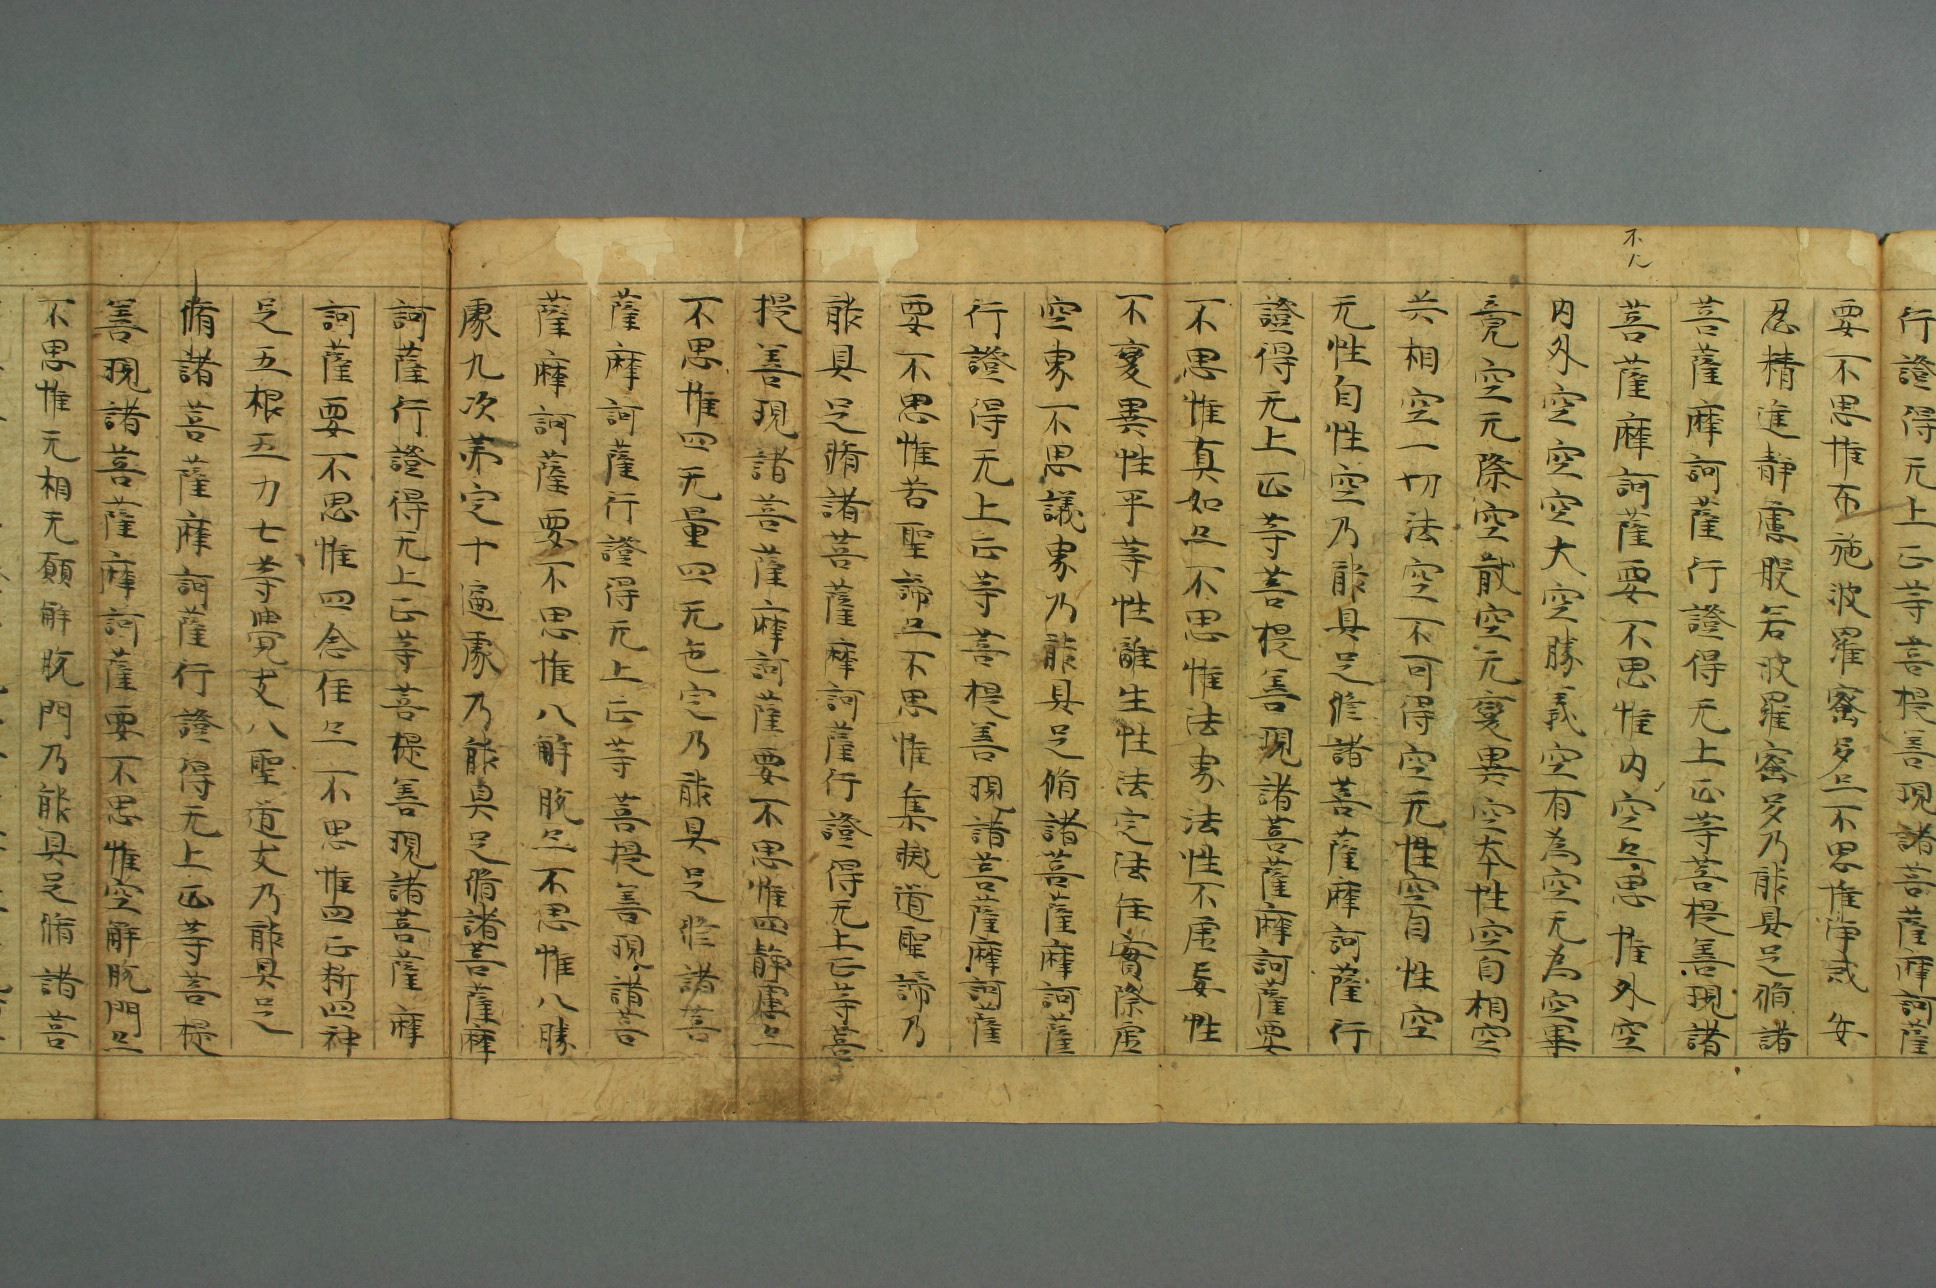 行證得无上正等菩提善現諸菩薩摩訶薩
要不思惟布施波羅蜜多亦不思惟淨戒安
忍精進靜慮般若波羅蜜多乃能具足脩諸
菩薩摩訶薩行證得无上正等菩提善現諸
不
菩薩摩訶薩要不思惟内空亦思惟外空
内外空空空大空勝義空有為空无為空畢
竟空无際空散空无變異空本性空自相空
共相空一切法空不可得空无性空自性空
无性自性空乃能具足脩諸菩薩摩訶薩行
證得无上正等菩提善現諸菩薩摩訶薩要
不思惟真如亦不思惟法界法性不虛妄性
不變異性平等性離生性法定法住實際虛
空界不思議界乃能具足脩諸菩薩摩訶薩
行證得无上正等菩提善現諸菩薩摩訶薩
要不思惟苦聖諦亦不思惟集滅道聖諦乃
能具足脩諸菩薩摩訶薩行證得无上正等菩
提善現諸菩薩摩訶薩要不思惟四靜慮亦
不思惟四无量四无色定乃能具足脩諸菩
薩摩訶薩行證得无上正等菩提善現諸菩
薩摩訶薩要不思惟八解脫亦不思惟八勝
處九次第定十遍處乃能具足脩諸菩薩摩
訶薩行證得无上正等菩提善現諸菩薩摩
訶薩要不思惟四念住亦不思惟四正斷四神
足五根五力七等覺支八聖道支乃能具足
脩諸菩薩摩訶薩行證得无上正等菩提
善現諸菩薩摩訶薩要不思惟空解脫門亦
不思惟无相无願解脫門乃能具足脩諸菩